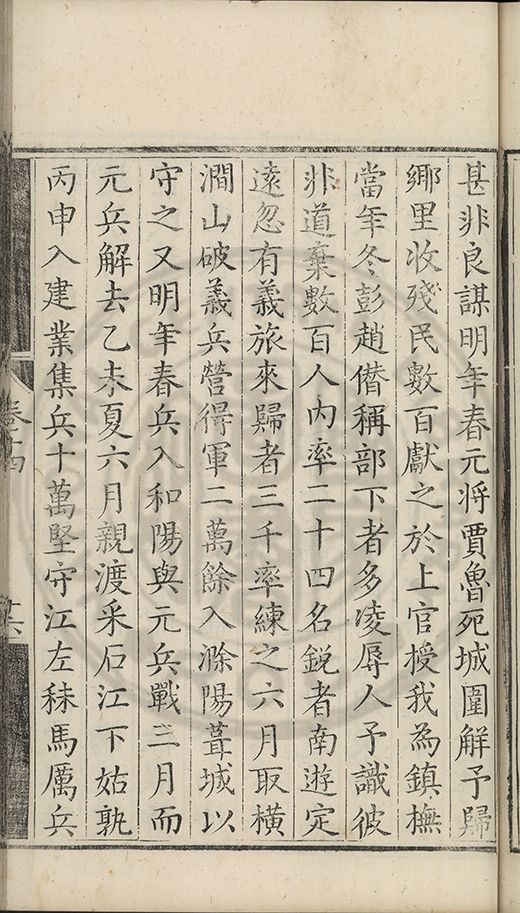 甚非良謀明年春元将賈魯死城圍解予歸
鄉里收殘民數百獻之於上官授我為鎮撫
當年冬彭趙僣稱部下者多凌辱人予識彼
非道棄數百人内率二十四名銳者南遊定
遠忽有義旅來歸者三千率練之六月取橫
澗山破義兵營得軍二萬餘入滁陽葺城以
守之又明年春兵入和陽與元兵戰三月而
元兵解去乙未夏六月親渡采石江下姑孰
丙申入建業集兵十萬堅守江左秣馬厲兵
卷十四